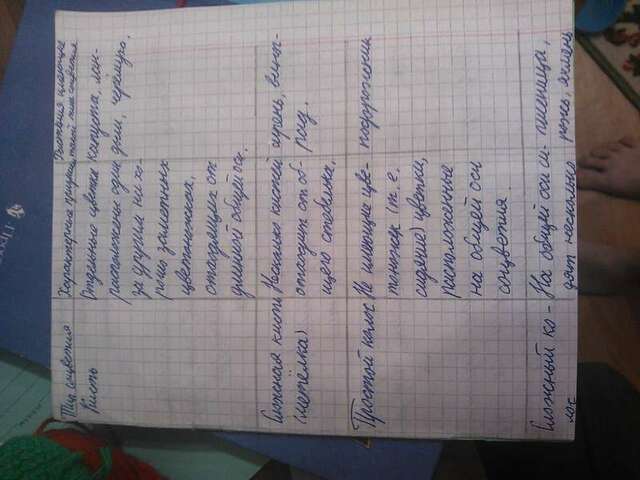 Тип соцветия
Характерные признаки
Растения имеющие такой тип соцветия
Кисть
Отдельные цветки
расположены один
за другим на хо-
рошо заметных
цветоножках,
отходящих от
длинной общей оси.
капуста, лан-
дыш, черёмуха.
Сложная кисть
(метёлка)
Несколько кистей
отходит от об-
щего стебелька.
сирень, виног-
рад.
Простой колос
Не имеющие цве-
тоножек (т. е.
сидячие) цветки,
расположенные
на общей оси
соцветия.
подорожник
Сложный ко-
лос
На общей оси си-
дят несколько
пшеница,
рожь, ячмень